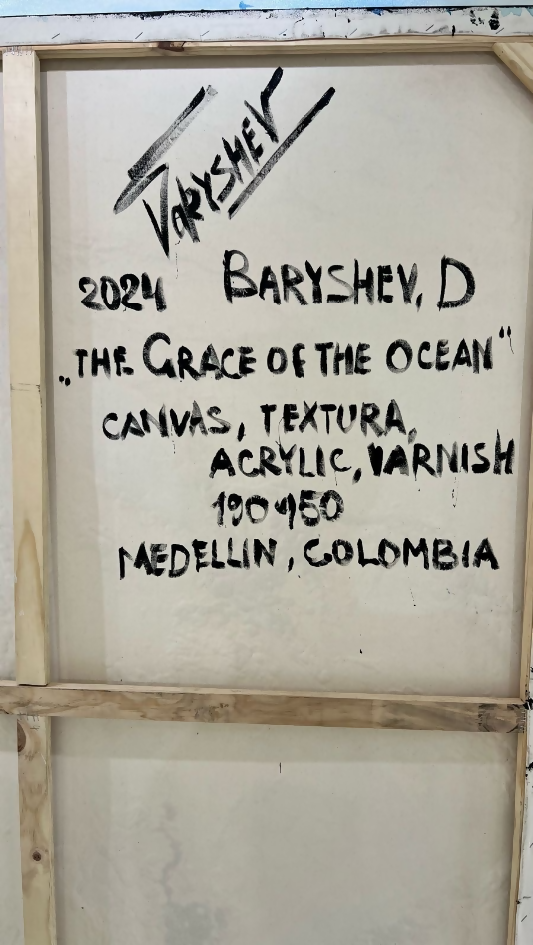 BARYSHEV
2024 BARYSHEV, D
„THE GRACE OF THE OCEAN“
CANVAS, TEXTURA,
ACRYLIC, VARNISH
MEDELLIN, COLOMBIA